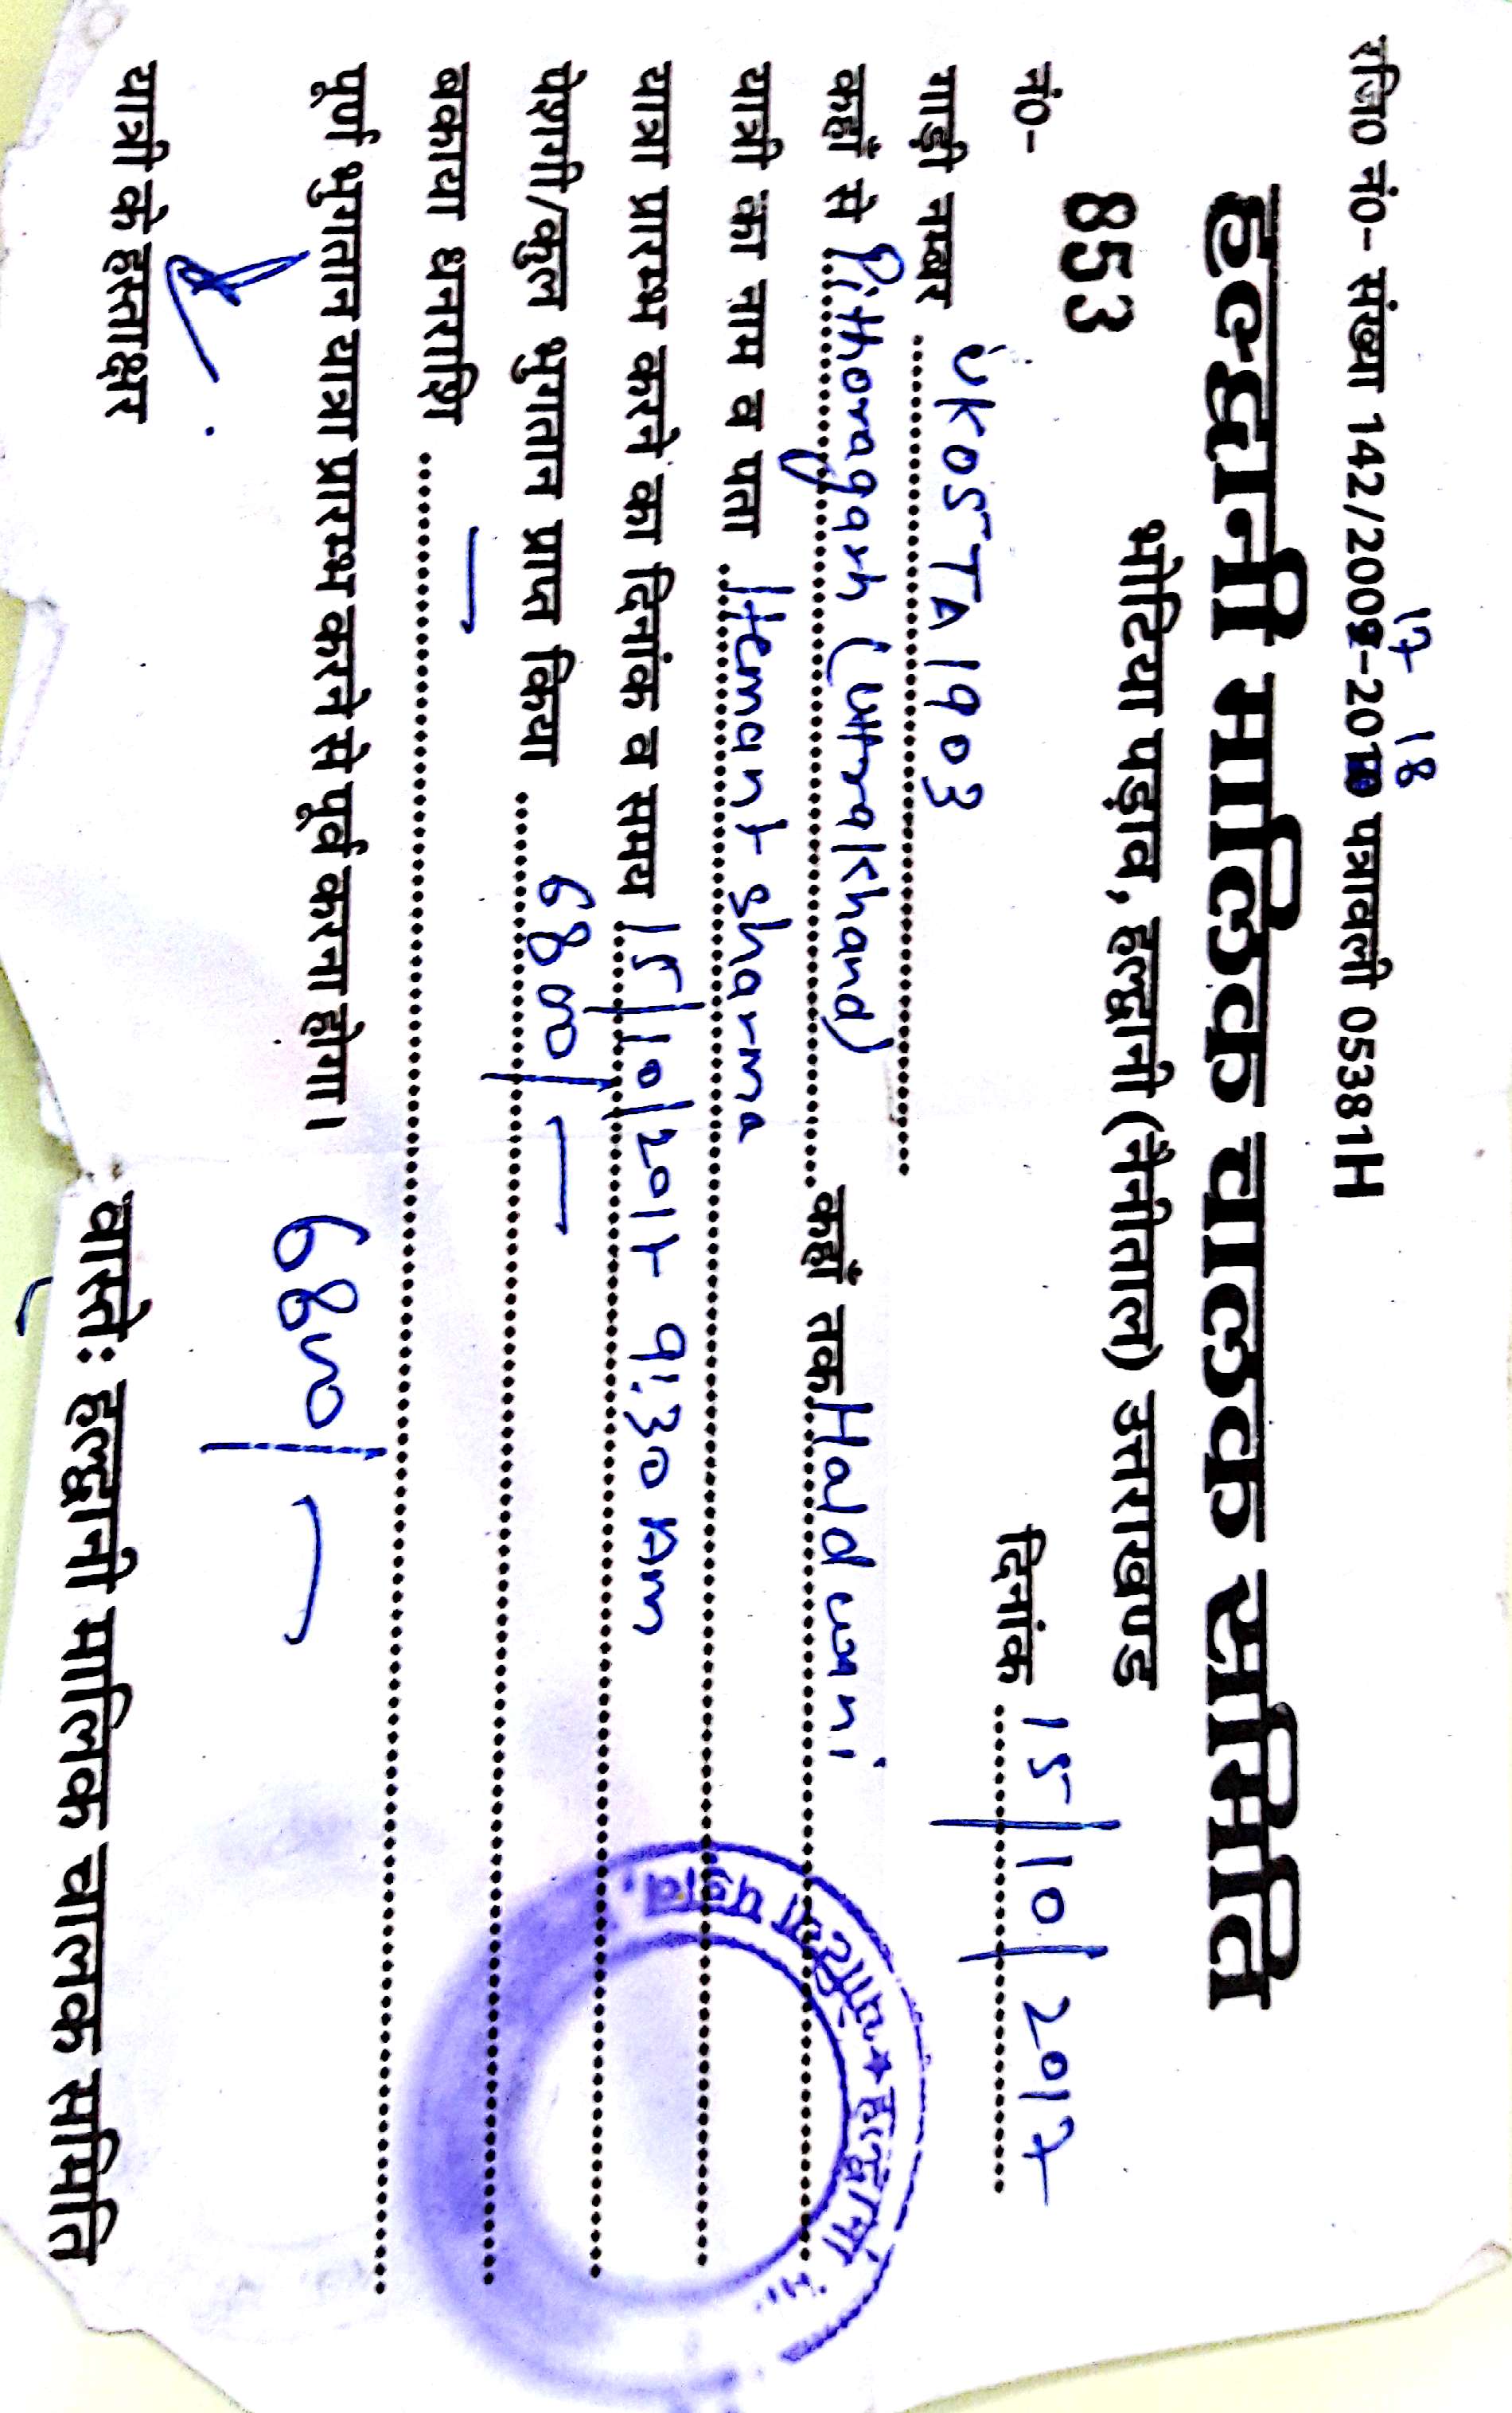 रजि0 नं0- संख्या 142/2009-2010 पत्रावली 05381H
17 18
हल्द्वानी मालिक चालक समिति
भोटिया पड़ाव, हल्द्वानी (नैनीताल) उत्तराखण्ड
नं0- 853 दिनांक 15/10/2017
गाड़ी नम्बर UK05TA1903
कहाँ से Pithoragarh (Uttrakhand) कहाँ तक Haldwani
यात्री का नाम व पता Hemant Sharma
यात्रा प्रारम्भ करने का दिनांक व समय 15/10/2017 9:30 Am
पेशगी/कुल भुगतान प्राप्त किया 6800/-
बकाया धनराशि —
पूर्ण भुगतान यात्रा प्रारम्भ करने से पूर्व करना होगा। 6800/-
यात्री के हस्ताक्षर वास्तेः हल्द्वानी मालिक चालक समिति